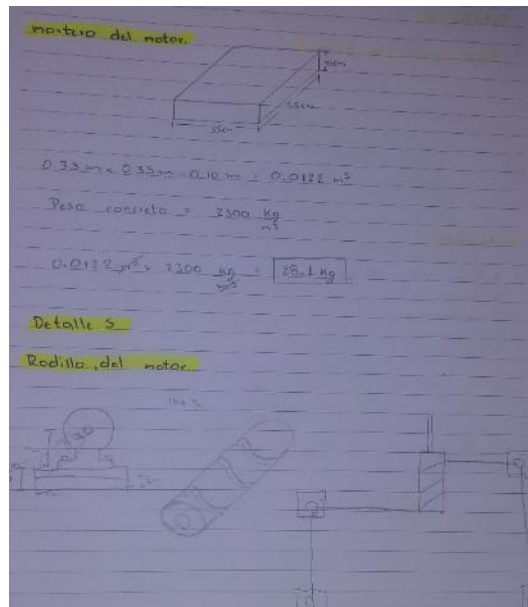 mortero del motor.
10cm
35cm
35cm
0.35m x 0.35m 0.10 m = 0.0122 m³
Peso concreto = 2300 Kg/m³
0.0122 m³ x 2300 Kg/m³ = 28.1 Kg
Detalle 5
Rodillo del motor